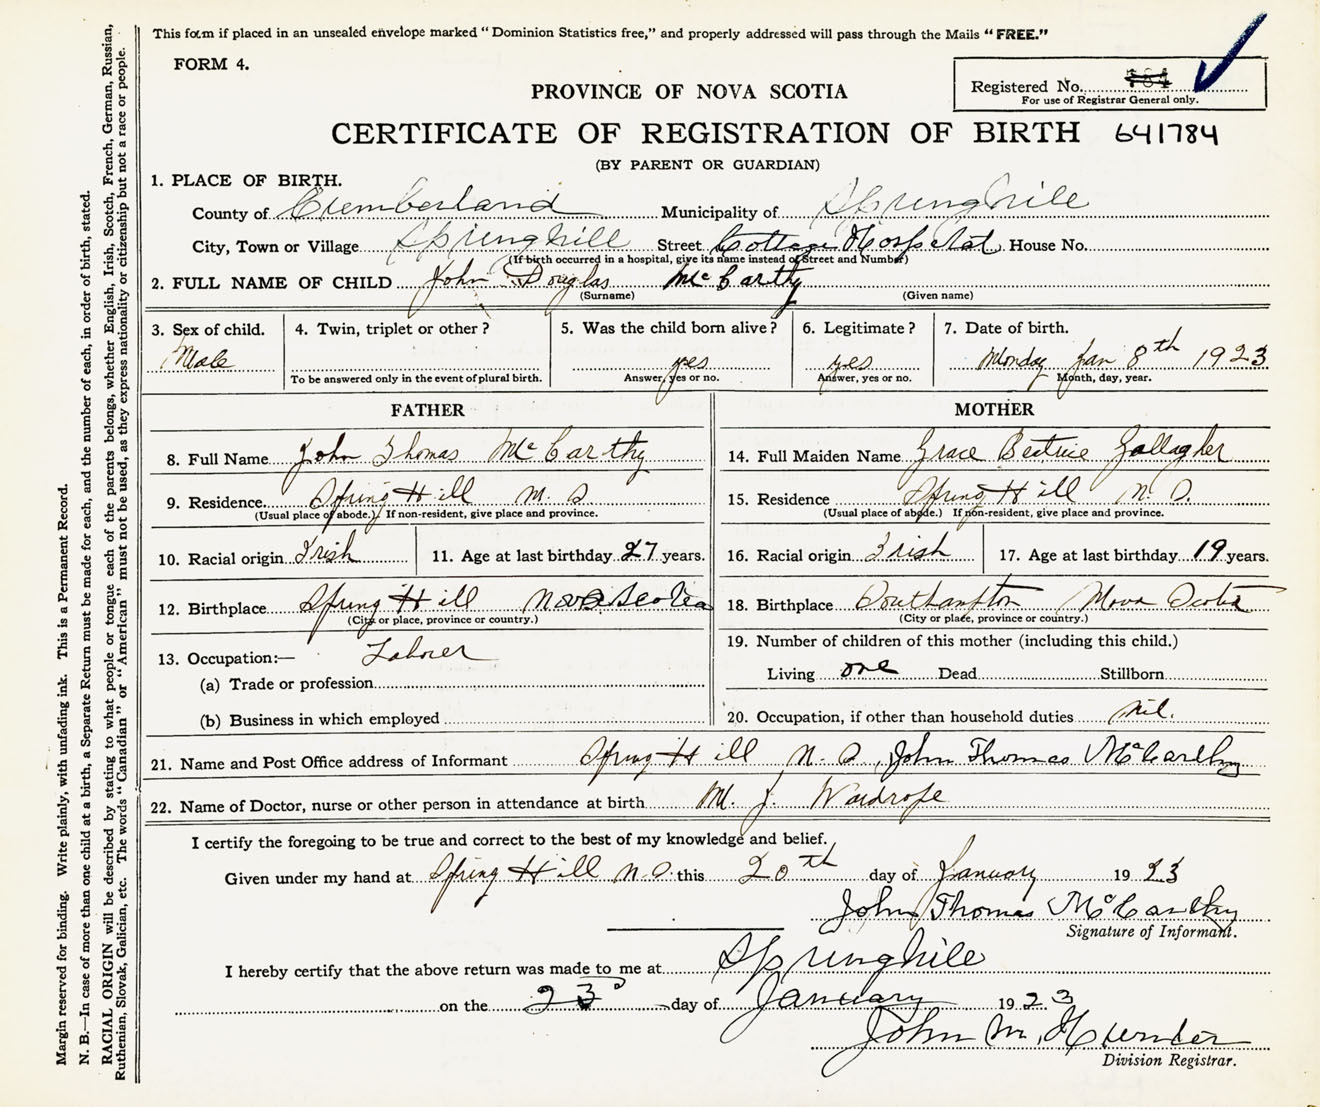 This form if placed in an unsealed envelope marked "Dominion Statistics free," and properly addressed will pass through the Mails "FREE."
FORM 4.
Registered No.
For use of Registrar General only.
PROVINCE OF NOVA SCOTIA
CERTIFICATE OF REGISTRATION OF BIRTH 641784
(BY PARENT OR GUARDIAN)
1. PLACE OF BIRTH.
County of Cumberland Municipality of Springhill
City, Town or Village Springhill Street Cottage Hospital House No.
(If birth occurred in a hospital, give its name instead of Street and Number)
2. FULL NAME OF CHILD John Douglas McCarthy
(Surname) (Given name)
3. Sex of child. 4. Twin, triplet or other? 5. Was the child born alive? 6. Legitimate? 7. Date of birth.
Male yes yes Monday Jan 8th 1923
To be answered only in the event of plural birth. Answer, yes or no. Answer, yes or no. Month, day, year.
FATHER MOTHER
8. Full Name John Thomas McCarthy 14. Full Maiden Name Grace Beatrice Gallagher
9. Residence. Spring Hill N. S 15. Residence Spring Hill N. S.
(Usual place of abode.) If non-resident, give place and province. (Usual place of abode.) If non-resident, give place and province.
10. Racial origin Irish 11. Age at last birthday 27 years. 16. Racial origin Irish 17. Age at last birthday 19 years.
12. Birthplace Spring Hill Nova Scotia 18. Birthplace Southampton Nova Scotia
(City or place, province or country.) (City or place, province or country.)
13. Occupation:— Laborer 19. Number of children of this mother (including this child.)
(a) Trade or profession Living one Dead Stillborn
(b) Business in which employed 20. Occupation, if other than household duties nil.
21. Name and Post Office address of Informant Spring Hill N. S, John Thomas McCarthy
22. Name of Doctor, nurse or other person in attendance at birth M. J. Wardrope
I certify the foregoing to be true and correct to the best of my knowledge and belief.
Given under my hand at Spring Hill N.S. this 20th day of January 1923
John Thomas McCarthy
Signature of Informant.
I hereby certify that the above return was made to me at Springhill
on the 23d day of January 1923
John M. Hunter
Division Registrar.
Margin reserved for binding. Write plainly, with unfading ink. This is a Permanent Record.
N. B.—In case of more than one child at a birth, a Separate Return must be made for each, and the number of each, in order of birth, stated.
RACIAL ORIGIN will be described by stating to what people or tongue each of the parents belongs, whether English, Irish, Scotch, French, German, Russian,
Ruthenian, Slovak, Galician, etc. The words "Canadian" or "American" must not be used, as they express nationality or citizenship but not a race or people.